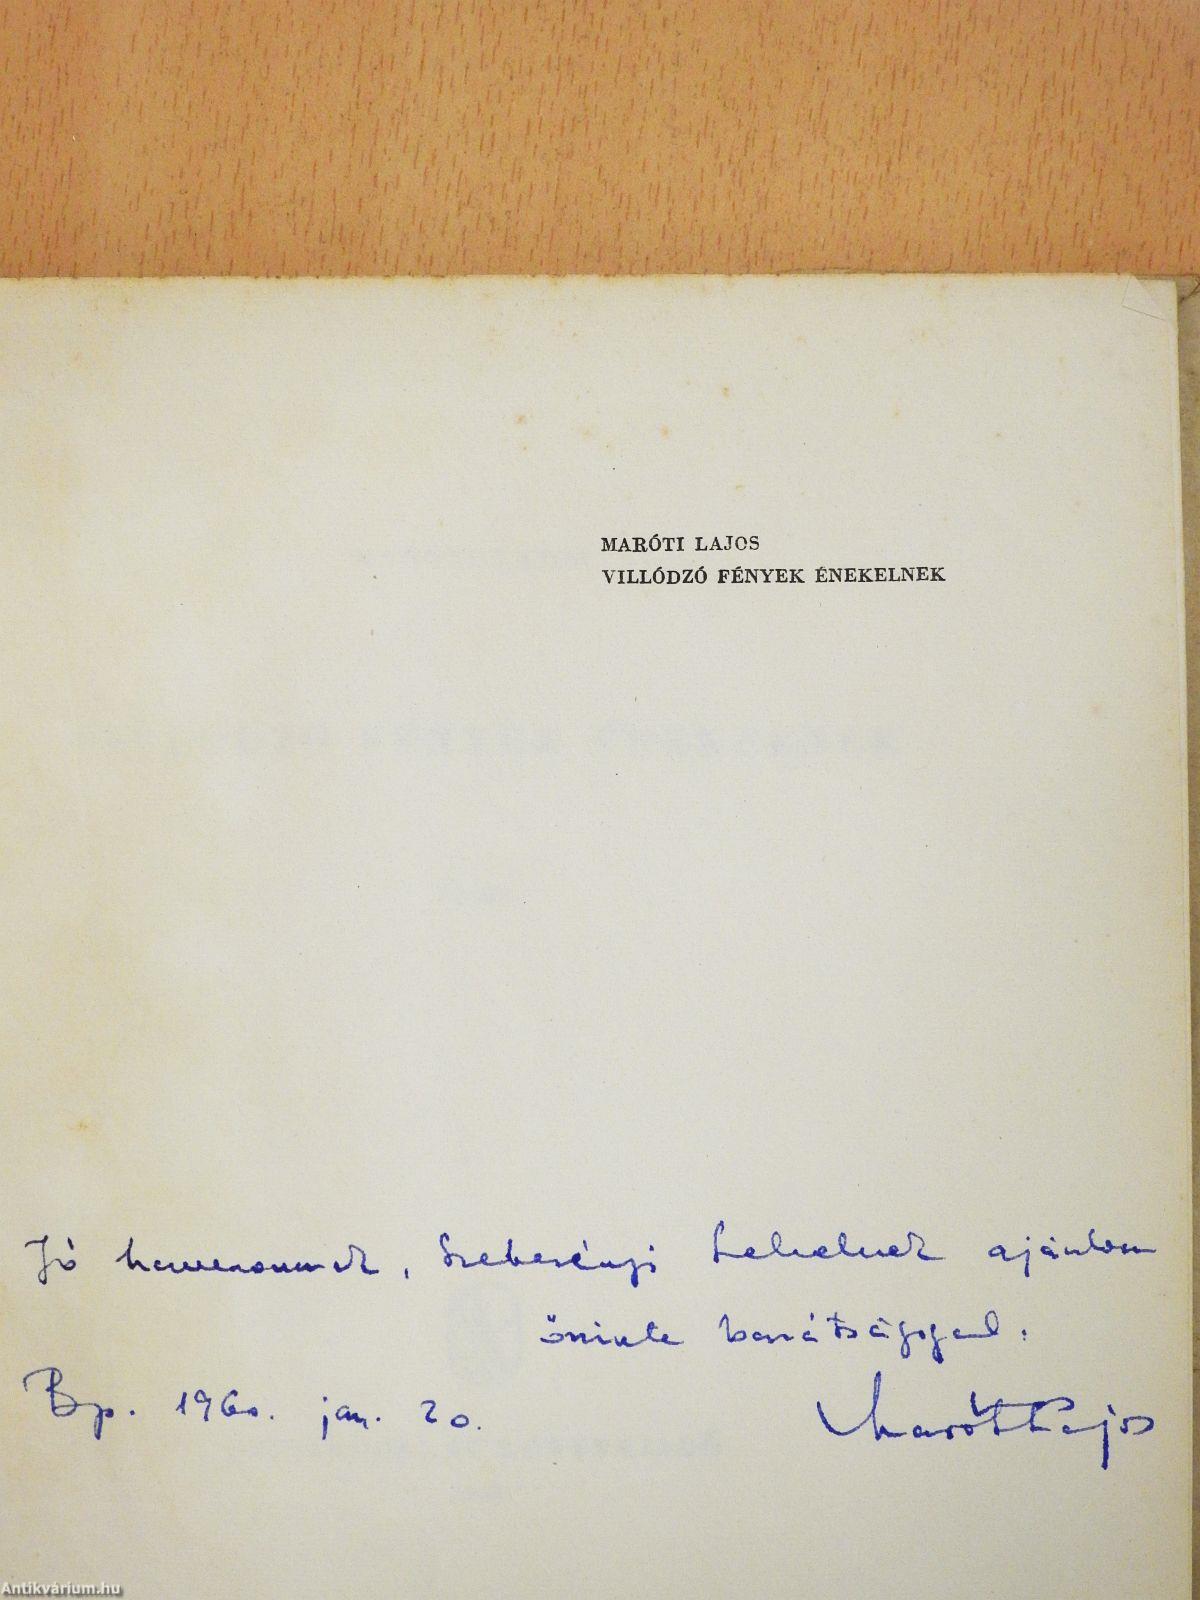 MARÓTI LAJOS
VILLÓDZÓ FÉNYEK ÉNEKELNEK
Jó haveromnak, Szeberényi Lehelnek ajánlom
őszinte barátsággal:
Bp. 1960. jan. 20.
Maróti Lajos
Antikvárium.hu